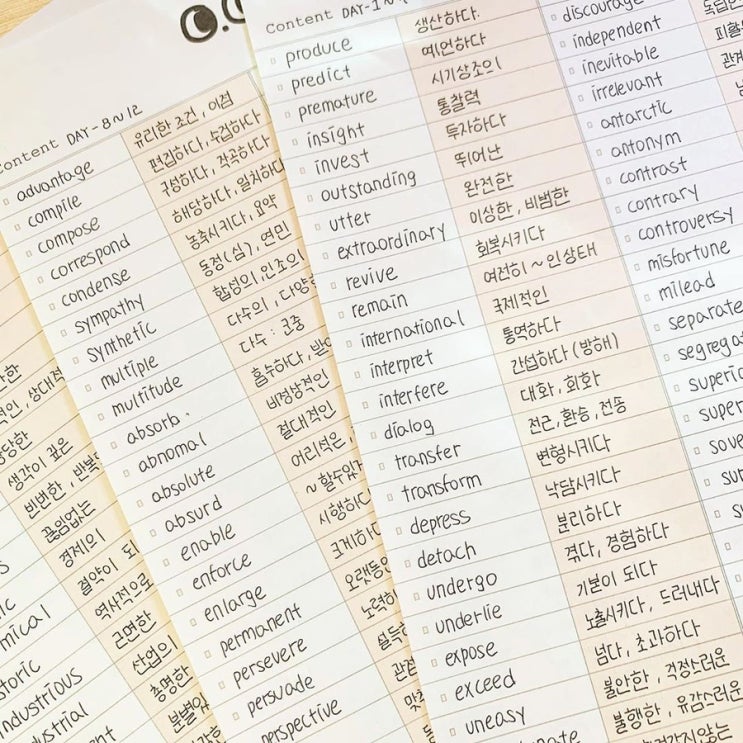 Content DAY-8~12
advantage 유리한 조건, 이점
compile 편집하다, 수집하다
compose 구성하다, 작곡하다
correspond 해당하다, 일치하다
condense 농축시키다, 요약
sympathy 동정(심), 연민
synthetic 합성의, 인조의
multiple 다수의, 다양
multitude 다수 : 군중
absorb. 흡수하다,
abnomal 비정상적인
absolute 절대적인
absurd 어리석은,
enable ~할수있
enforce 시행하다
enlarge 크게하다
permanent
persevere 노력하
persuade 설득하
perspective
Content DAY-1~
produce 생산하다.
predict 예언하다
premature 시기상조의
insight 통찰력
invest 투자하다
outstanding 뛰어난
utter 완전한
extraordinary 이상한, 비범한
revive 회복시키다
remain 여전히 ~인상태
international 국제적인
interpret 통역하다
interfere 간섭하다 (방해)
dialog 대화, 회화
transfer 전근, 환승, 전송
transform 변형시키다
depress 낙담시키다
detach 분리하다
undergo 겪다, 경험하다
underlie 기본이 되다
expose 노출시키다, 드러내다
exceed 넘다, 초과하다
uneasy 불안한, 걱정스러운
불행한, 유감스러운
discourage
independent
inevitable
irrelevant
antarctic
antonym
contrast
contrary
controversy
misfortune
milead
separate
생각이 깊은
빈번한, 반복
끊임없는
경제의
절약이 되
역사적으로
근면한
산업의
총명한